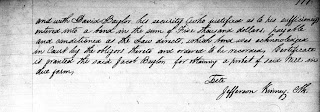 and with David Baylor his security (who justified as to his sufficiency)
entered into a bond in the sum of Five thousand dollars, payable
and conditioned as the law directs, which bond was acknowledged
in Court by the obligors thereto and ordered to be recorded. Certificate
is granted the said Jacob Baylor for obtaining a probat of said Will in
due form.
Teste
Jefferson Kinney, Clk